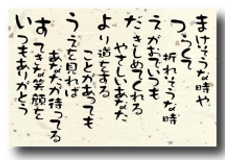 まけそうな時や
つらくて
折れそうな時
えがおでいつも
だきしめてくれる
やさしいあなた
より道をする
ことがあっても
うえを見れば
あなたが待ってる
すてきな笑顔を
いつもありがとう